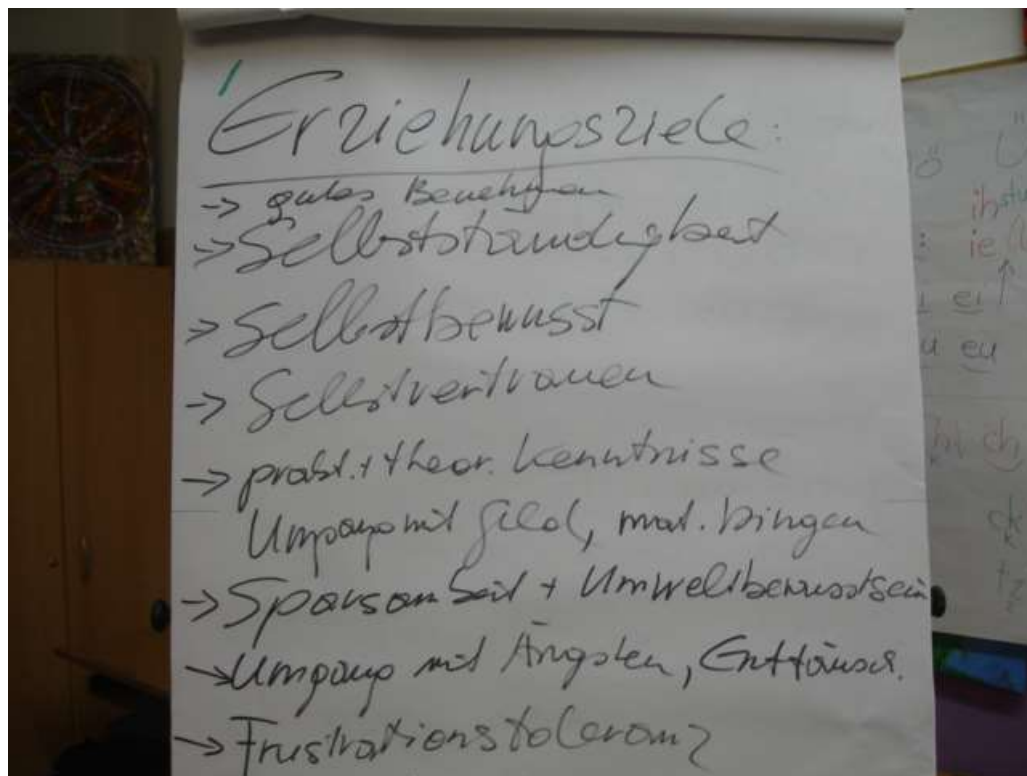 Erziehungsziele:
→ gutes Benehmen
→ Selbstständigkeit
→ Selbstbewusst
→ Selbstvertrauen
→ prakt. + theor. Kenntnisse
Umgang mit Geld, mat. Dingen
→ Sparsamkeit + Umweltbewusstsein
→ Umgang mit Ängsten, Enttäusch.
→ Frustrationstoleranz
ih
ie
ei
eu
ch
ck
tz